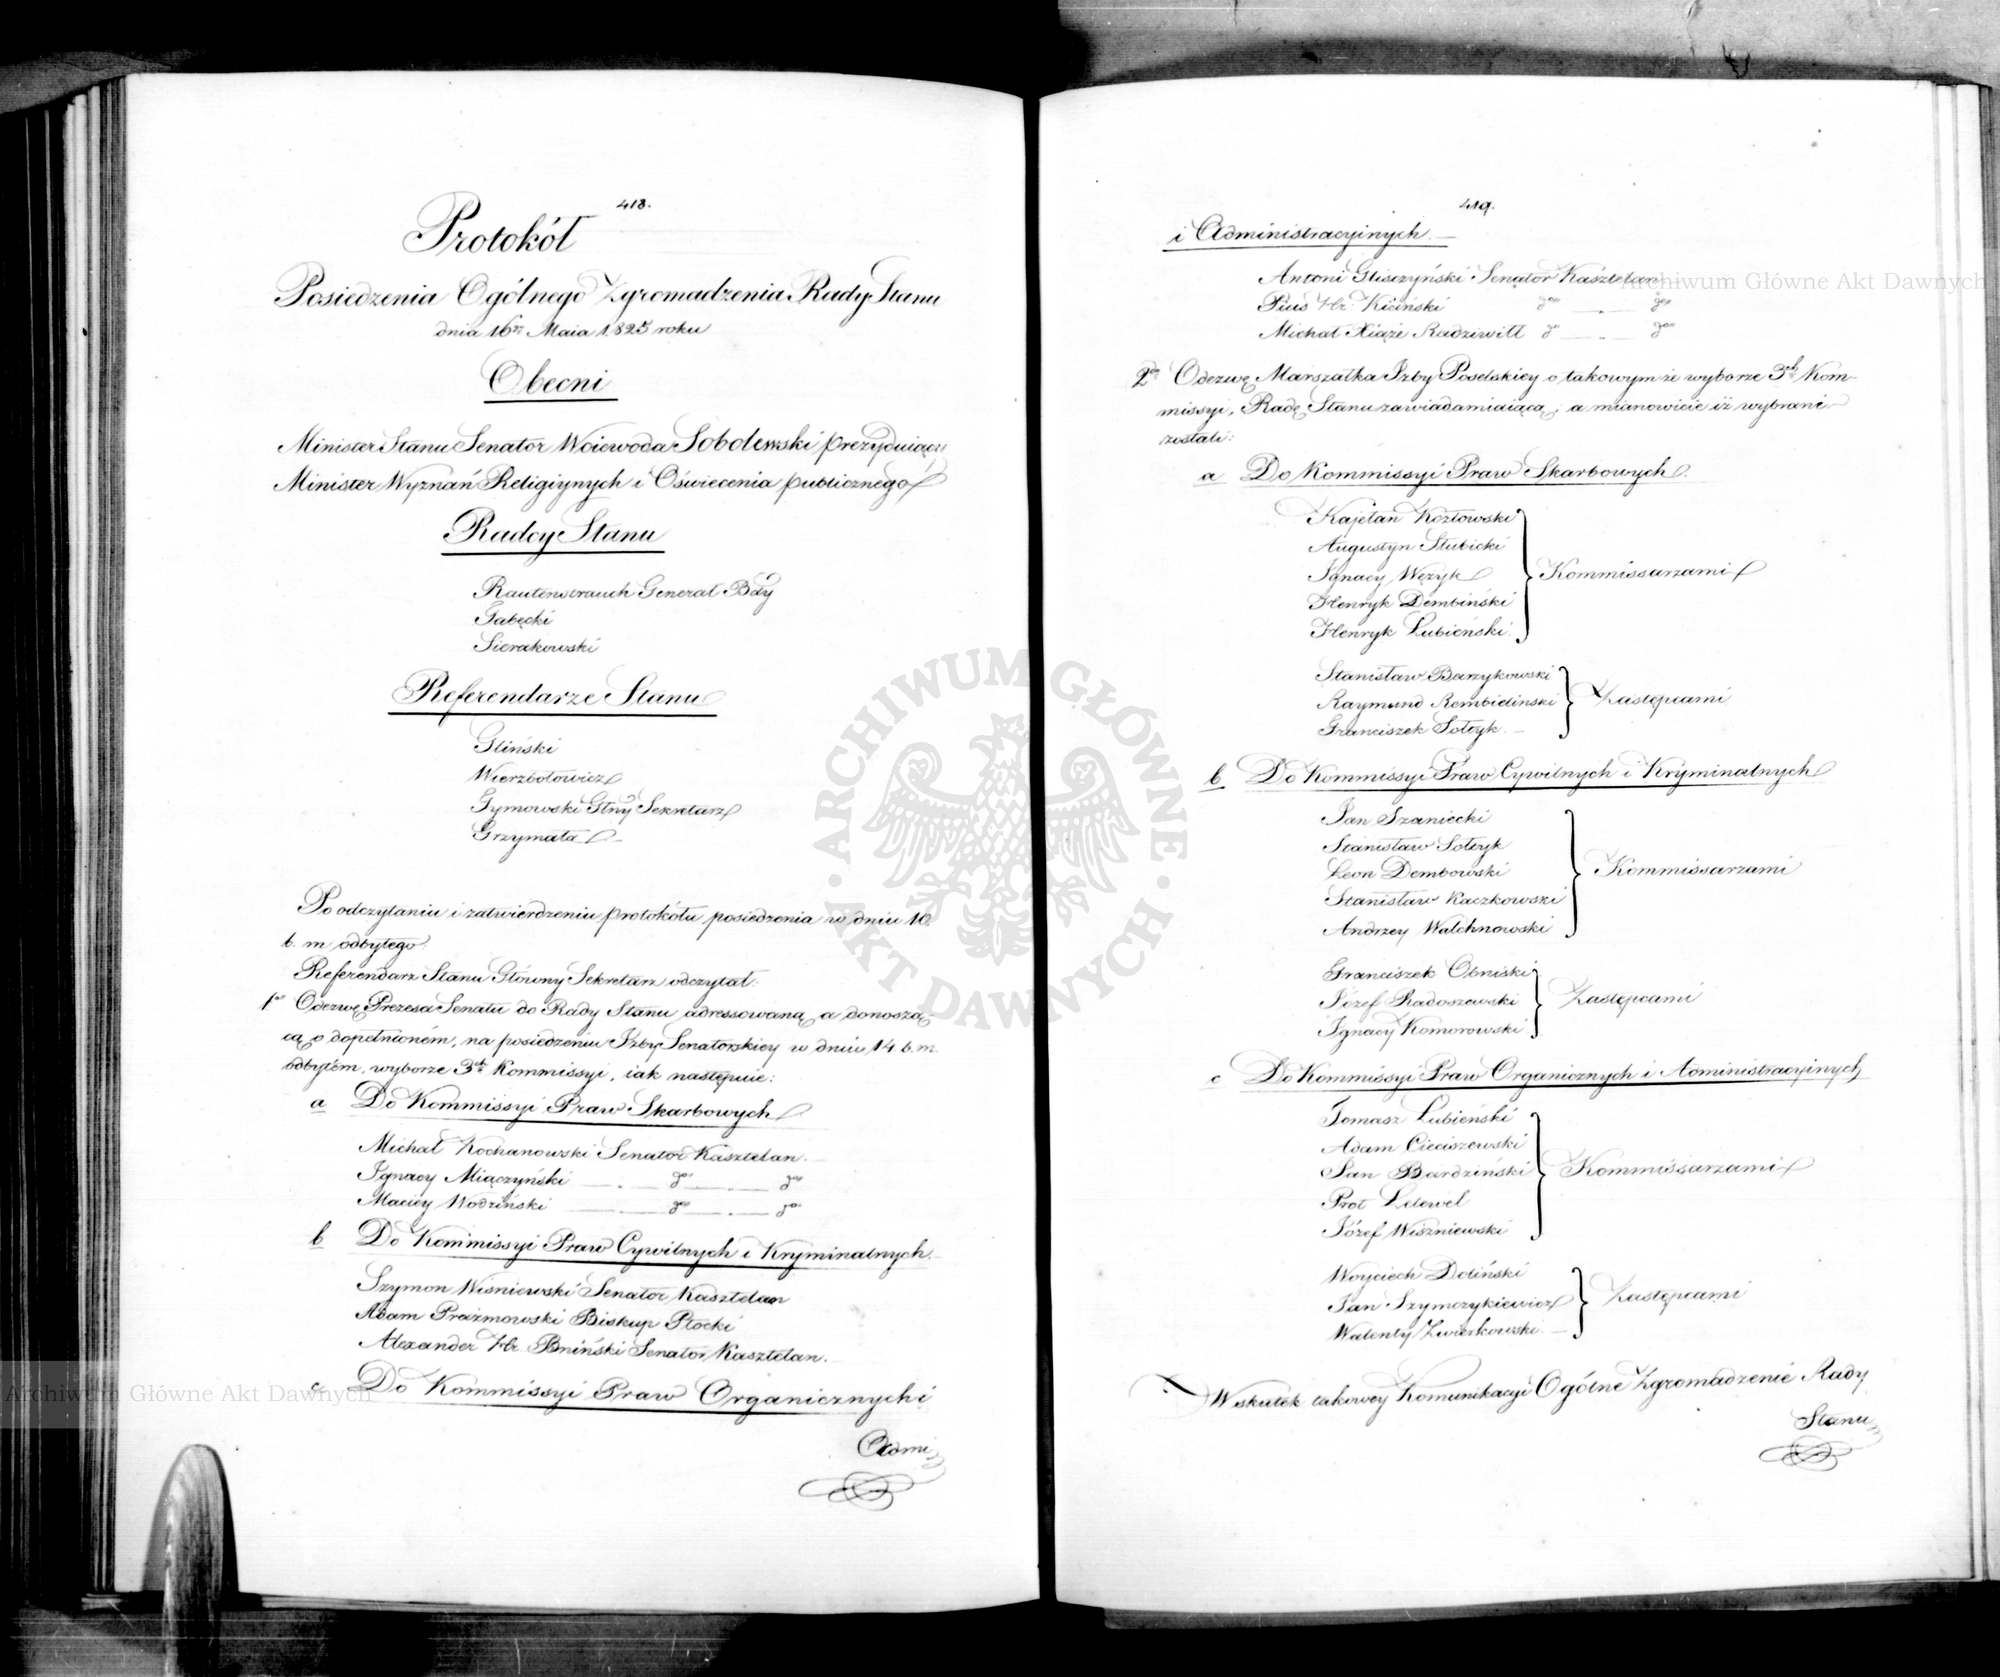 418.
Protokół
Posiedzenia Ogólnego Zgromadzenia Rady Stanu
dnia 16go Maia 1825 roku
Obecni
Minister Stanu Senator Woiewoda Sobolewski prezyduiący
Minister Wyznań Religiynych i Oświecenia publicznego
Radcy Stanu
Rautenstrauch Generał Bdy
Gałęcki
Sierakowski
Referendarze Stanu
Gliński
Wierzbołowicz
Tymowski Głny Sekretarz
Grzymała
Po odczytaniu i zatwierdzeniu protokółu posiedzenia w dniu 10.
b. m odbytego.
Referendarz Stanu Główny Sekretarz odczytał:
1o Odezwę Prezesa Senatu do Rady Stanu adressowaną a donoszą-
cą o dopełnioném, na posiedzeniu Izby Senatorskiey w dniu 14 b. m.
odbytém, wyborze 3ch Kommissyi, iak następuie:
a Do Kommissyi Praw Skarbowych
Michał Kochanowski Senator Kasztelan.
Ignacy Miączyński — . — do — . — do
Maciey Wodziński — do — . — do
b Do Kommissyi Praw Cywilnych i Kryminalnych.
Szymon Wiśniewski Senator Kasztelan
Adam Prażmowski Biskup Płocki
Alexander Hr. Bniński Senator Kasztelan.
c Do Kommissyi Praw Organicznych i
Admi
419.
i Administracyinych.
Antoni Gliszczyński Senator Kasztelan
Pius Hr. Kiciński do — . — do
Michał Xiąże Radziwiłł do — . — do
2do Odezwę Marszałka Izby Poselskiey o takowymże wyborze 3ch Kom-
missyi, Radę Stanu zawiadamiaiącą; a mianowicie iż wybrani
zostali:
a Do Kommissyi Praw Skarbowych.
Kajetan Kozłowski
Augustyn Słubicki
Ignacy Wężyk
Henryk Dembiński
Henryk Łubieński.
Kommissarzami
Stanisław Barzykowski
Raymund Rembieliński
Franciszek Sołtyk.
Zastępcami
b Do Kommissyi Praw Cywilnych i Kryminalnych
Jan Szaniecki
Stanisław Sołtyk
Leon Dembowski
Stanisław Kaczkowski
Andrzey Walchnowski
Kommissarzami
Franciszek Obniski
Józef Radoszewski
Ignacy Komorowski
Zastępcami
c Do Kommissyi Praw Organicznych i Administracyinych
Tomasz Łubieński
Adam Cieciszewski
Jan Bardziński
Prot Lelewel
Józef Wiszniewski
Kommissarzami
Woyciech Doliński
Jan Szymczykiewicz
Walenty Zwierkowski.
Zastępcami
W skutek takowey komunikacyi Ogólne Zgromadzenie Rady
Stanu
ARCHIWUM GŁÓWNE AKT DAWNYCH
Archiwum Główne Akt Dawnych
Archiwum Główne Akt Dawnych